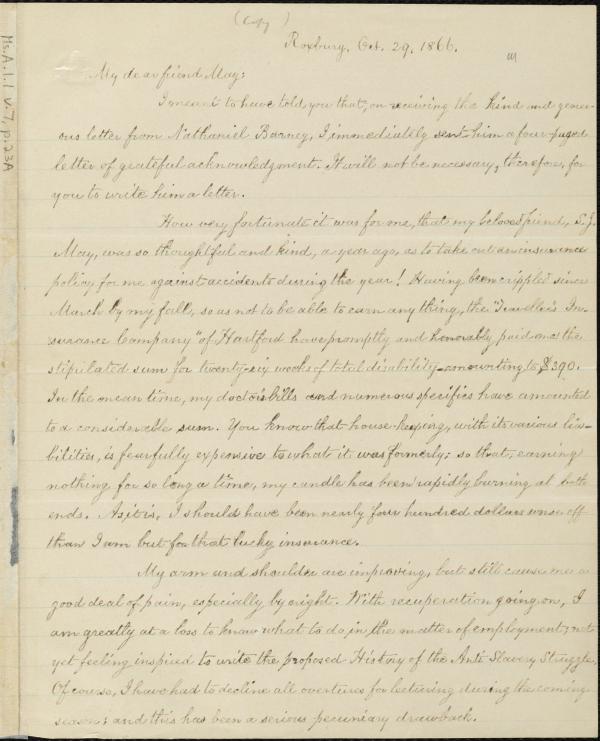 (Copy)
Roxbury, Oct. 29, 1866.
My dear friend May:
I meant to have told you that, on receiving the kind and gener-
ous letter from Nathaniel Barney, I immediately sent him a four-paged
letter of grateful acknowledgment. It will not be necessary, therefore, for
you to write him a letter.
How very fortunate it was for me, that my beloved friend, S. J.
May, was so thoughtful and kind, a year ago, as to take out an insurance
policy for me against accidents during the year! Having been crippled since
March by my fall, so as not to be able to earn any thing, the "Traveller's In-
surance Company" of Hartford have promptly and honorably paid me the
stipulated sum for twenty-six weeks of total disability—amounting to $390.
In the mean time, my doctor's bills and numerous specifics have amounted
to a considerable sum. You know that house-keeping, with its various lia-
bilities, is fearfully expensive to what it was formerly; so that, earning
nothing for so long a time, my candle has been rapidly burning at both
ends. As it is, I should have been nearly four hundred dollars worse off
than I am but for that lucky insurance.
My arm and shoulder are improving, but still cause me a
good deal of pain, especially by night. With recuperation going on, I
am greatly at a loss to know what to do, in the matter of employment; not
yet feeling inspired to write the proposed History of the Anti Slavery Struggle.
Of course, I have had to decline all overtures for lecturing during the coming
season; and this has been a serious pecuniary drawback.
Ms.A.1.1 v.7, p.23A